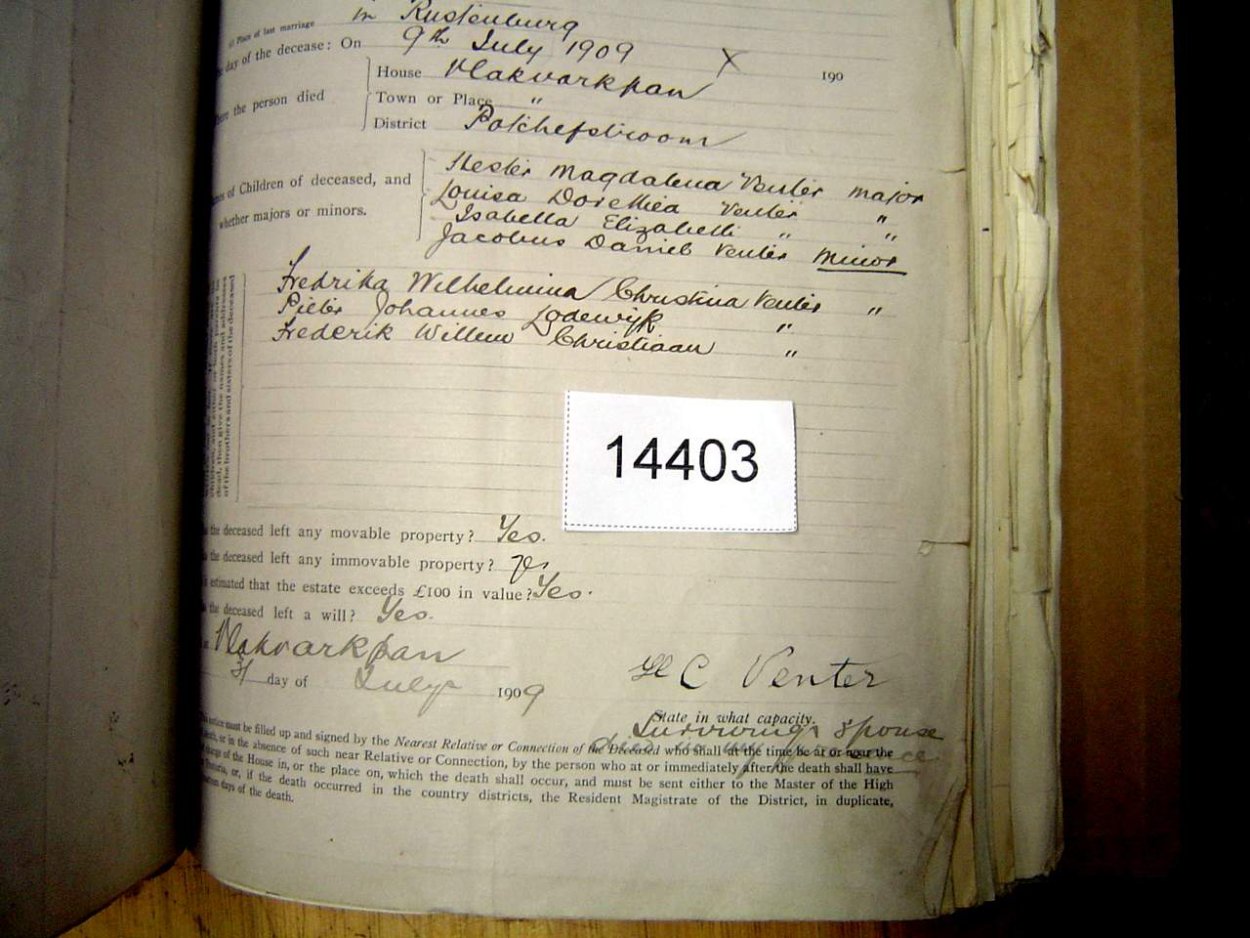 (c) Place of last marriage in Rustenburg
day of the decease: On 9th July 1909 X 190
House Vlakvarkpan
the person died Town or Place "
District Potchefstroom
Hester Magdalena Venter major
of Children of deceased, and Louisa Dorethea Venter "
whether majors or minors. Isabella Elizabeth " "
Jacobus Daniel Venter minor
Fredrika Wilhelmina Christina Venter "
Pieter Johannes Lodewyk "
Frederik Willem Christiaan "
dead, then give the names and addresses
of the brothers and sisters of the deceased
14403
the deceased left any movable property? Yes.
the deceased left any immovable property? Yes
estimated that the estate exceeds £100 in value? Yes.
the deceased left a will? Yes.
Vlakvarkpan
31 day of July 1909
C Venter
State in what capacity.
Surviving spouse
notice must be filled up and signed by the Nearest Relative or Connection of the Deceased who shall at the time be at or near the
death, or in the absence of such near Relative or Connection, by the person who at or immediately after the death shall have
charge of the House in, or the place on, which the death shall occur, and must be sent either to the Master of the High
or, if the death occurred in the country districts, the Resident Magistrate of the District, in duplicate,
days of the death.